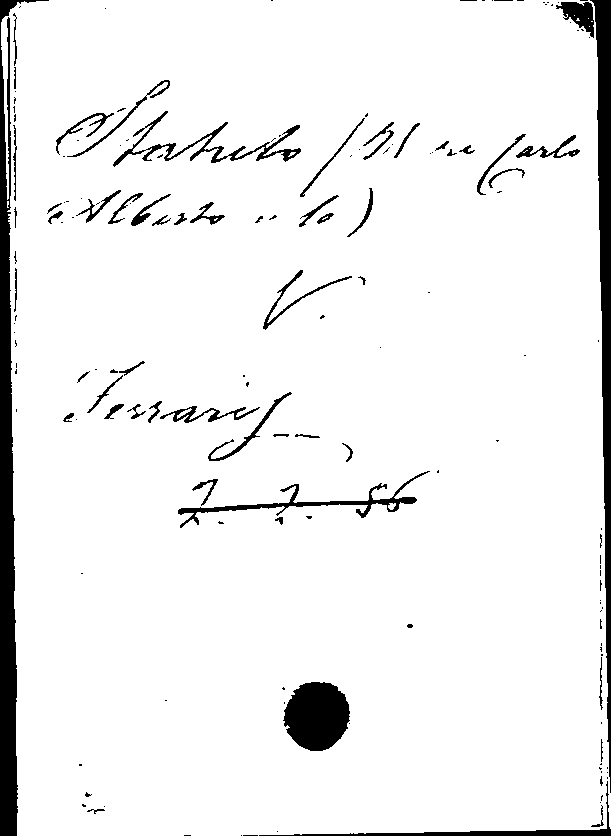 Statuto (Il re Carlo
Alberto e lo)
V.
Ferraris
Z. Z. 56